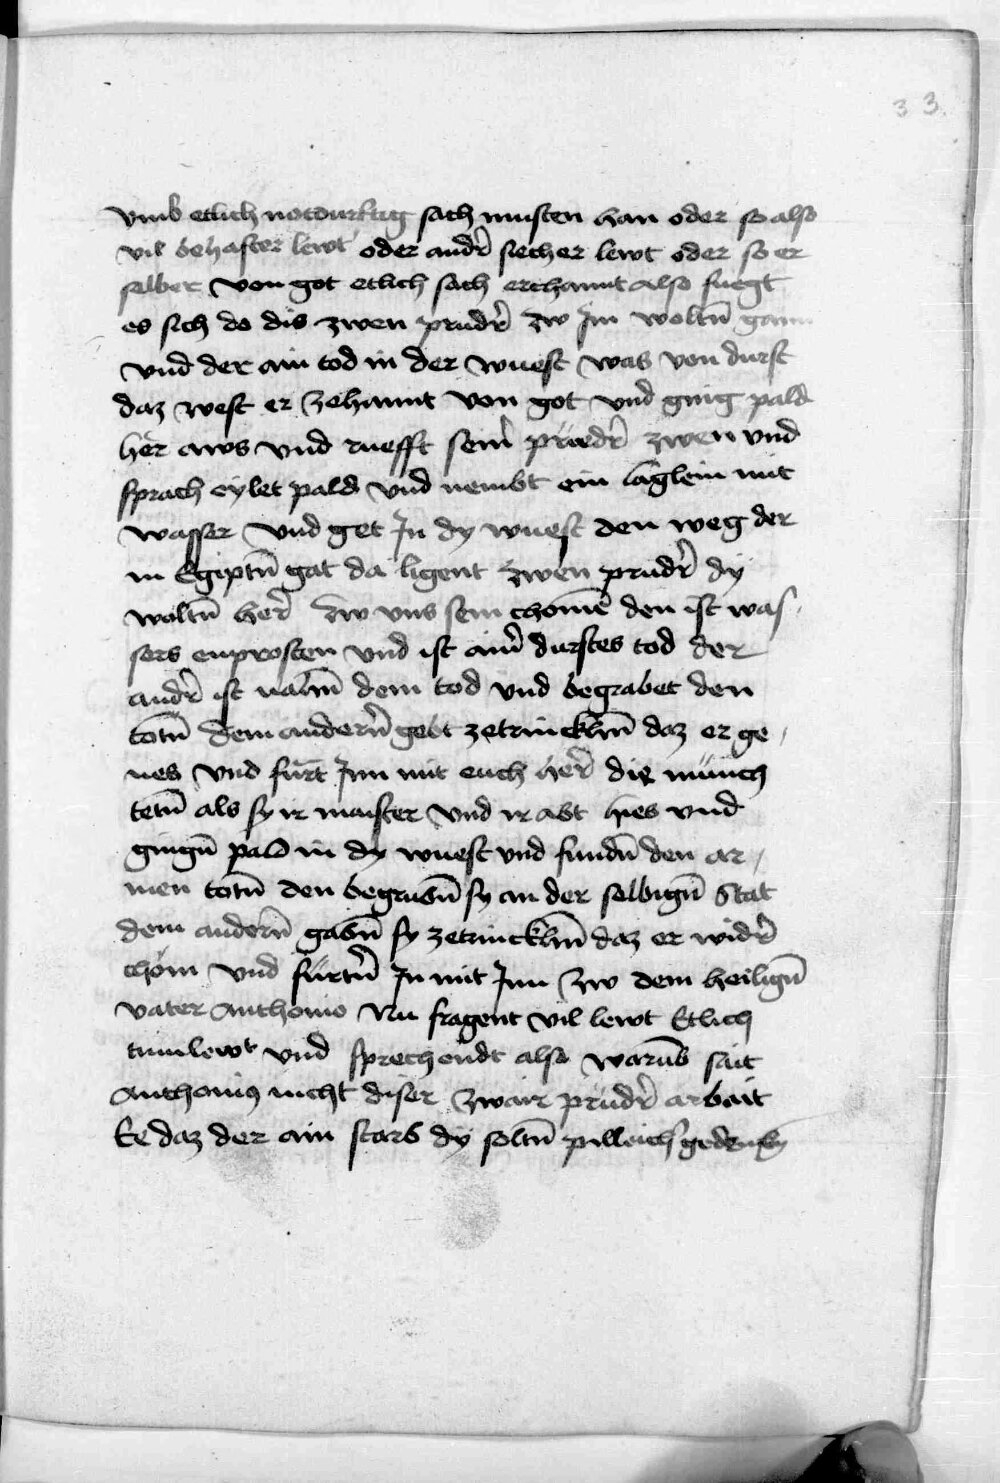 33.
vmb etlich notdurftig sach musten han oder so also
vil behafter lewt oder andr̄ siecher lewt oder so er
selber von got etlich sach erchannt also fuegt
es sich do dis zwen prüdr̄ zw Jm woltn̄ gann
vnd der ain tod in der wuest was von durst
daz west er zehannt von got vnd ging pald
her aws vnd ruefft seinr̄ prüedr̄ zwen vnd
sprach eylet pald vnd nembt ein läglein mit
wasser vnd get Jn dy wuest den weg der
in Egiptn̄ gat da ligent zwen prüdr̄ dy
woltn̄ her̄ zw vns sein chomē den ist was
sers enprosten vnd ist ainr̄ durstes tod der
andr̄ ist nahn̄ dem tod vnd begrabet den
totn̄ dem andern̄ gebt zetrinckhn̄ daz er ge
nes vnd fürt Jnn mit euch her̄ die münch
tetn̄ als sy ir maister vnd ir abt hies vnd
gingn̄ pald in dy wuest vnd fundn̄ den ar
men totn̄ den begrubn̄ sy an der selbign̄ Stat
dem andern̄ gabn̄ sy zetrinckhn̄ daz er widr̄
chöm vnd fürtn̄ Jn mit Jnn zw dem heilign̄
vater Anthonio Nu fragent vil lewt Etlich
tumlewt vnd sprechendt also warūb sait
Anthonius nicht diser zwair prüdr̄ arbait
Ee daz der ain starb dy soltn̄ pilleich gedenkn̄